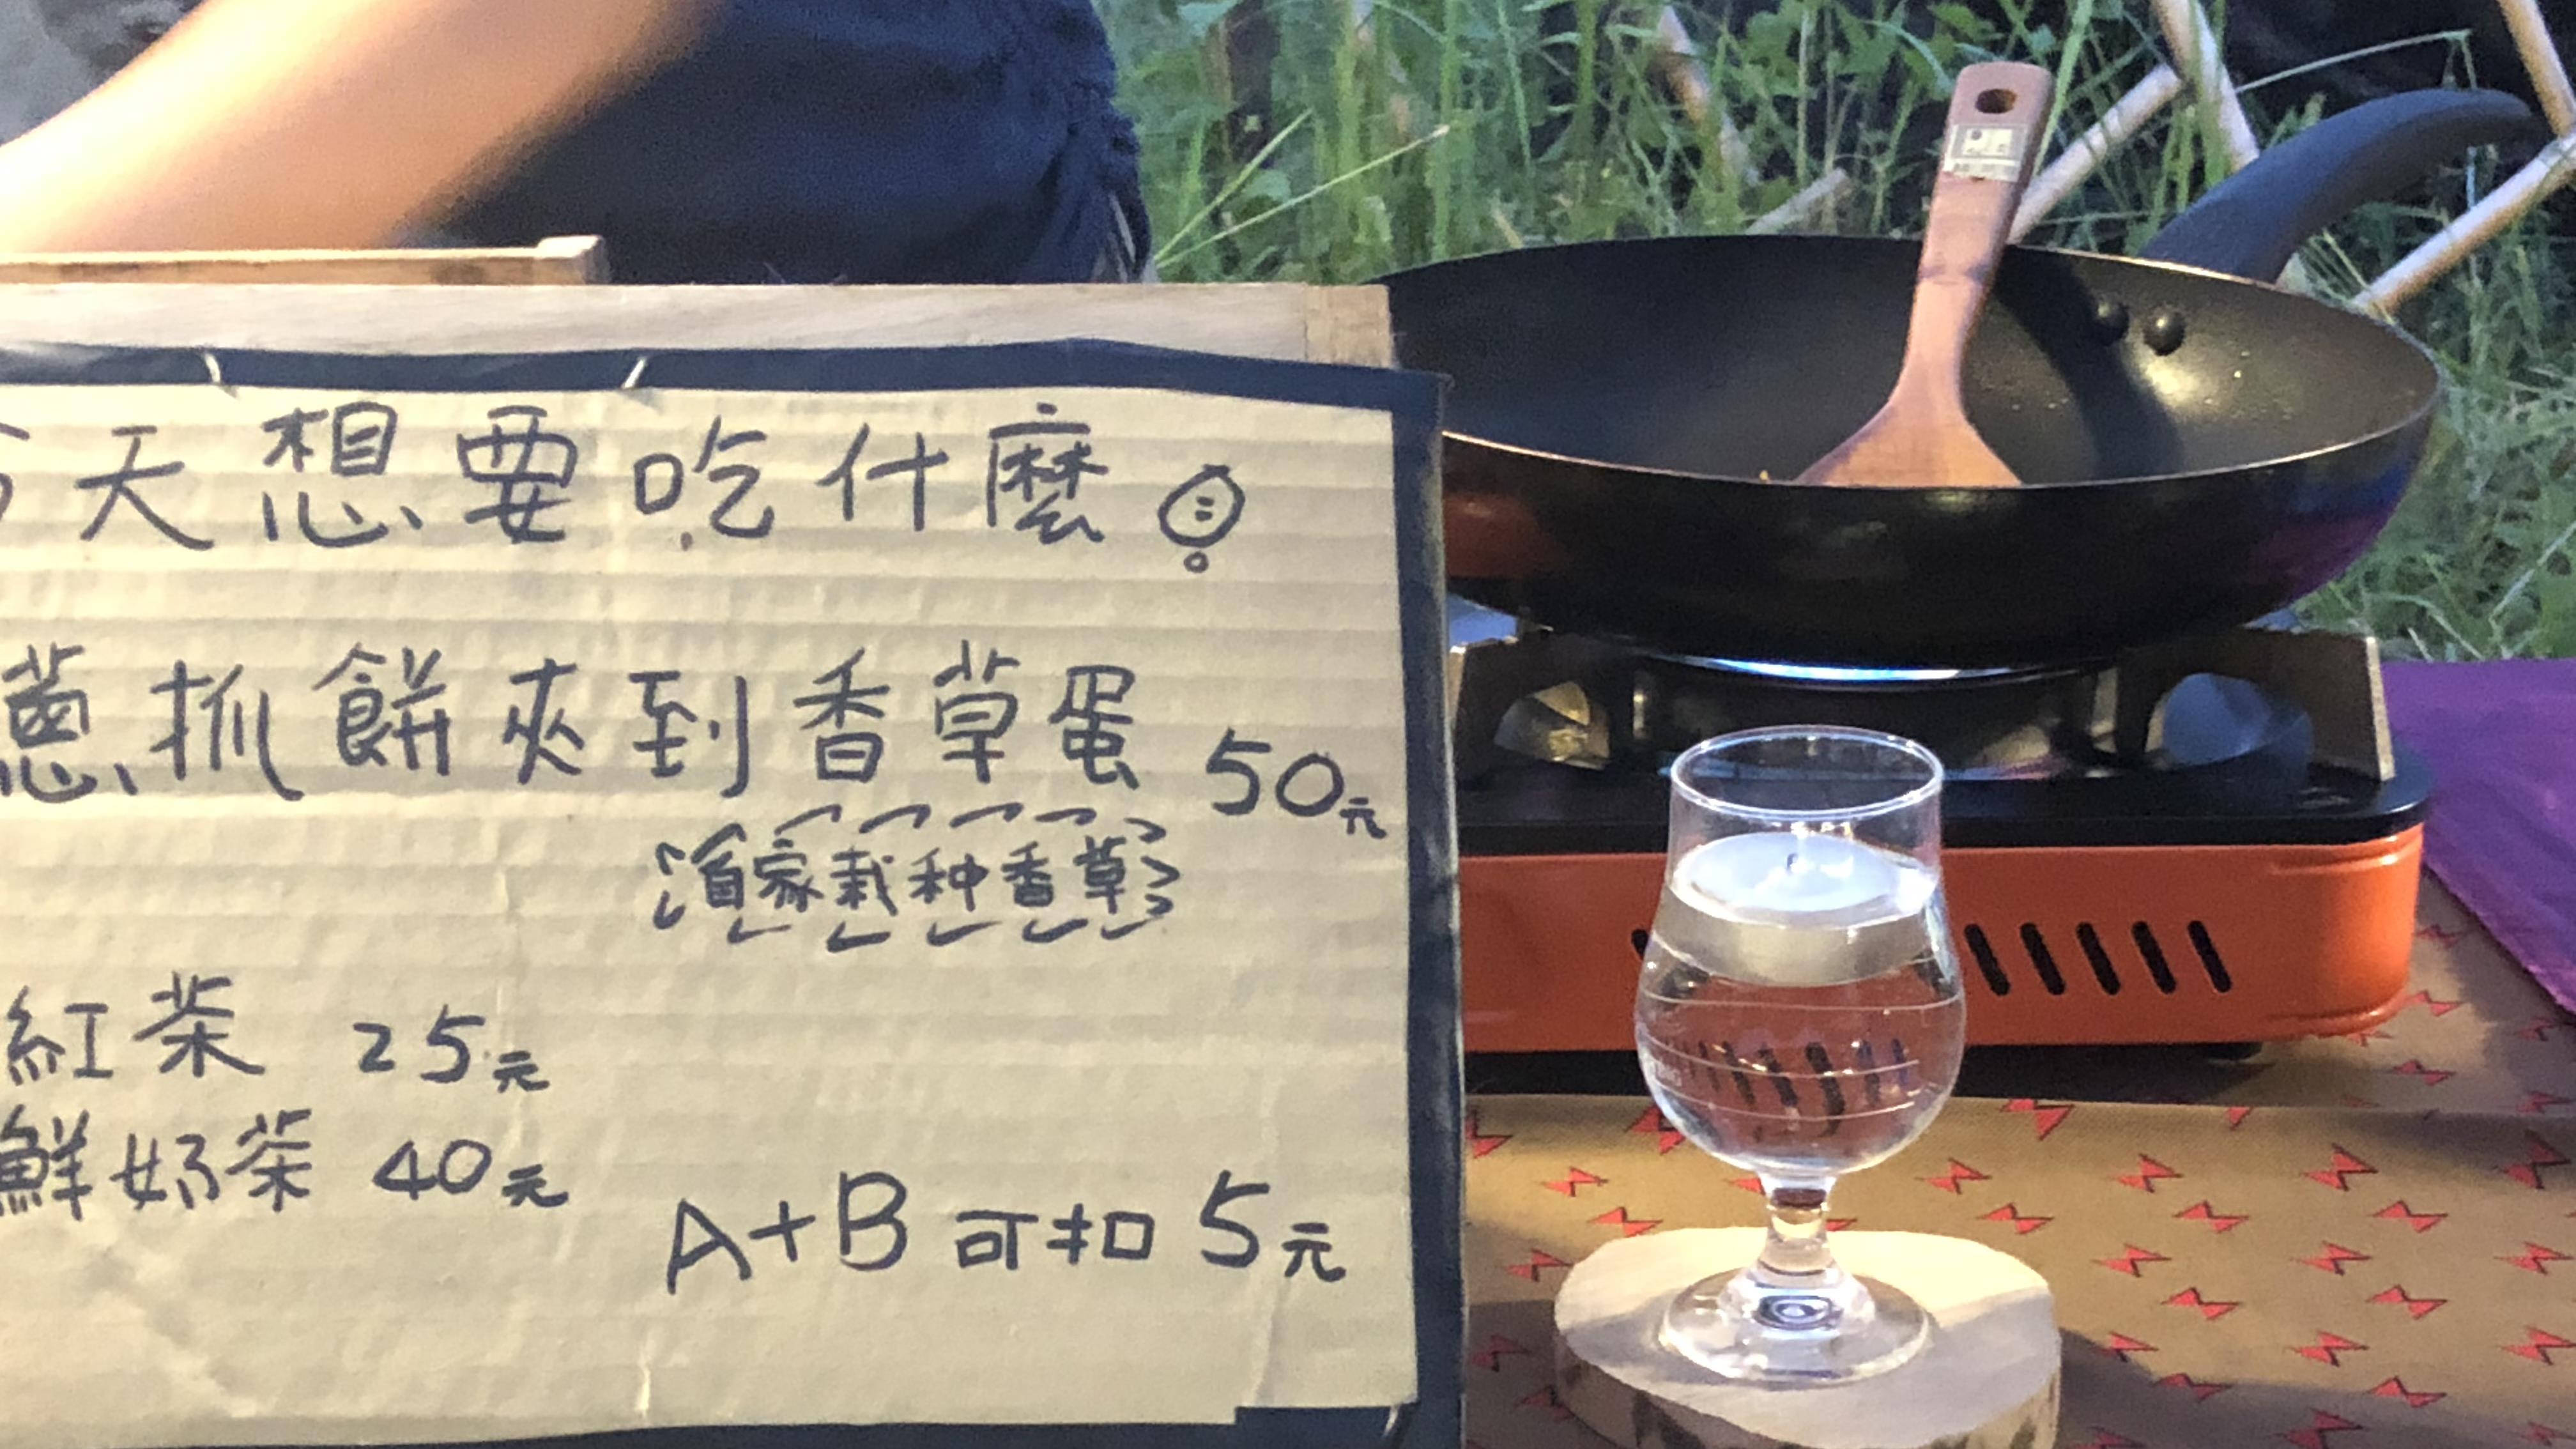 天想要吃什麼
蔥抓餅夾到香草蛋 50元
自家栽种香草
紅茶 25元
鮮奶茶 40元
A+B 可扣 5元